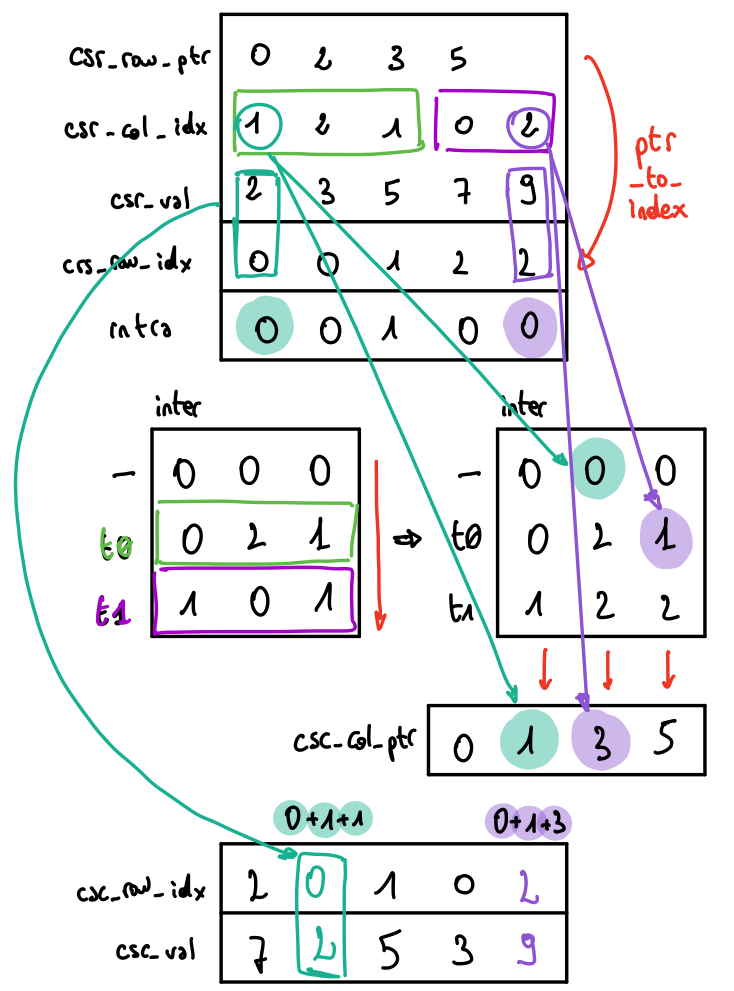 csr_row_ptr 0 2 3 5
csr_col_idx 1 2 1 0 2
ptr
_to_
index
csr_val 2 3 5 7 9
crs_row_idx 0 0 1 2 2
intra 0 0 1 0 0
inter
inter
- 0 0 0
t0 0 2 1
t1 1 0 1
⇒
- 0 0 0
t0 0 2 1
t1 1 2 2
csc_col_ptr 0 1 3 5
0+1+1 0+1+3
csc_row_idx 2 0 1 0 2
csc_val 7 2 5 3 9